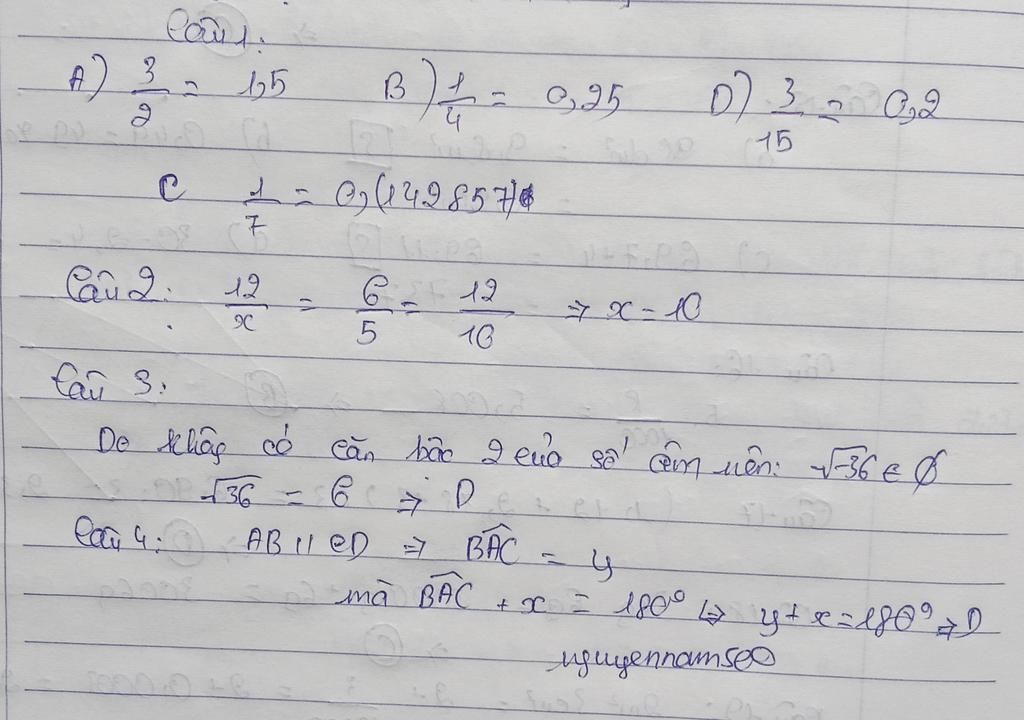 Câu 1:
A) 3/2 = 1,5 B) 1/4 = 0,25 D) 3/15 = 0,2
C 1/7 = 0,(142857)
Câu 2: 12/x = 6/5 = 12/10 => x = 10
Câu 3:
Do không có căn bậc 2 của số âm nên: √-36 ∈ ∅
√36 = 6 => D
Câu 4: AB // CD => BAC = y
mà BAC + x = 180° => y + x = 180° => D
nguyennam5e0